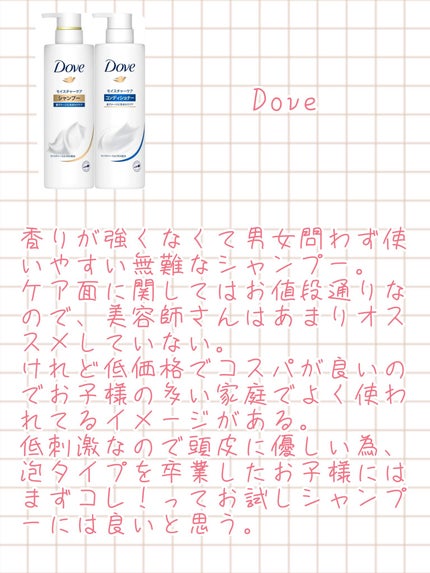 Dove
モイスチャーケア
シャンプー
Dove
モイスチャーケア
コンディショナー
Dove
香りが強くなくて男女問わず使
いやすい無難なシャンプー。
ケア面に関してはお値段通りな
ので、美容師さんはあまりオス
スメしていない。
けれど低価格でコスパが良いの
でお子様の多い家庭でよく使わ
れてるイメージがある。
低刺激なので頭皮に優しい為、
泡タイプを卒業したお子様には
まずコレ！ってお試しシャンプ
ーには良いと思う。